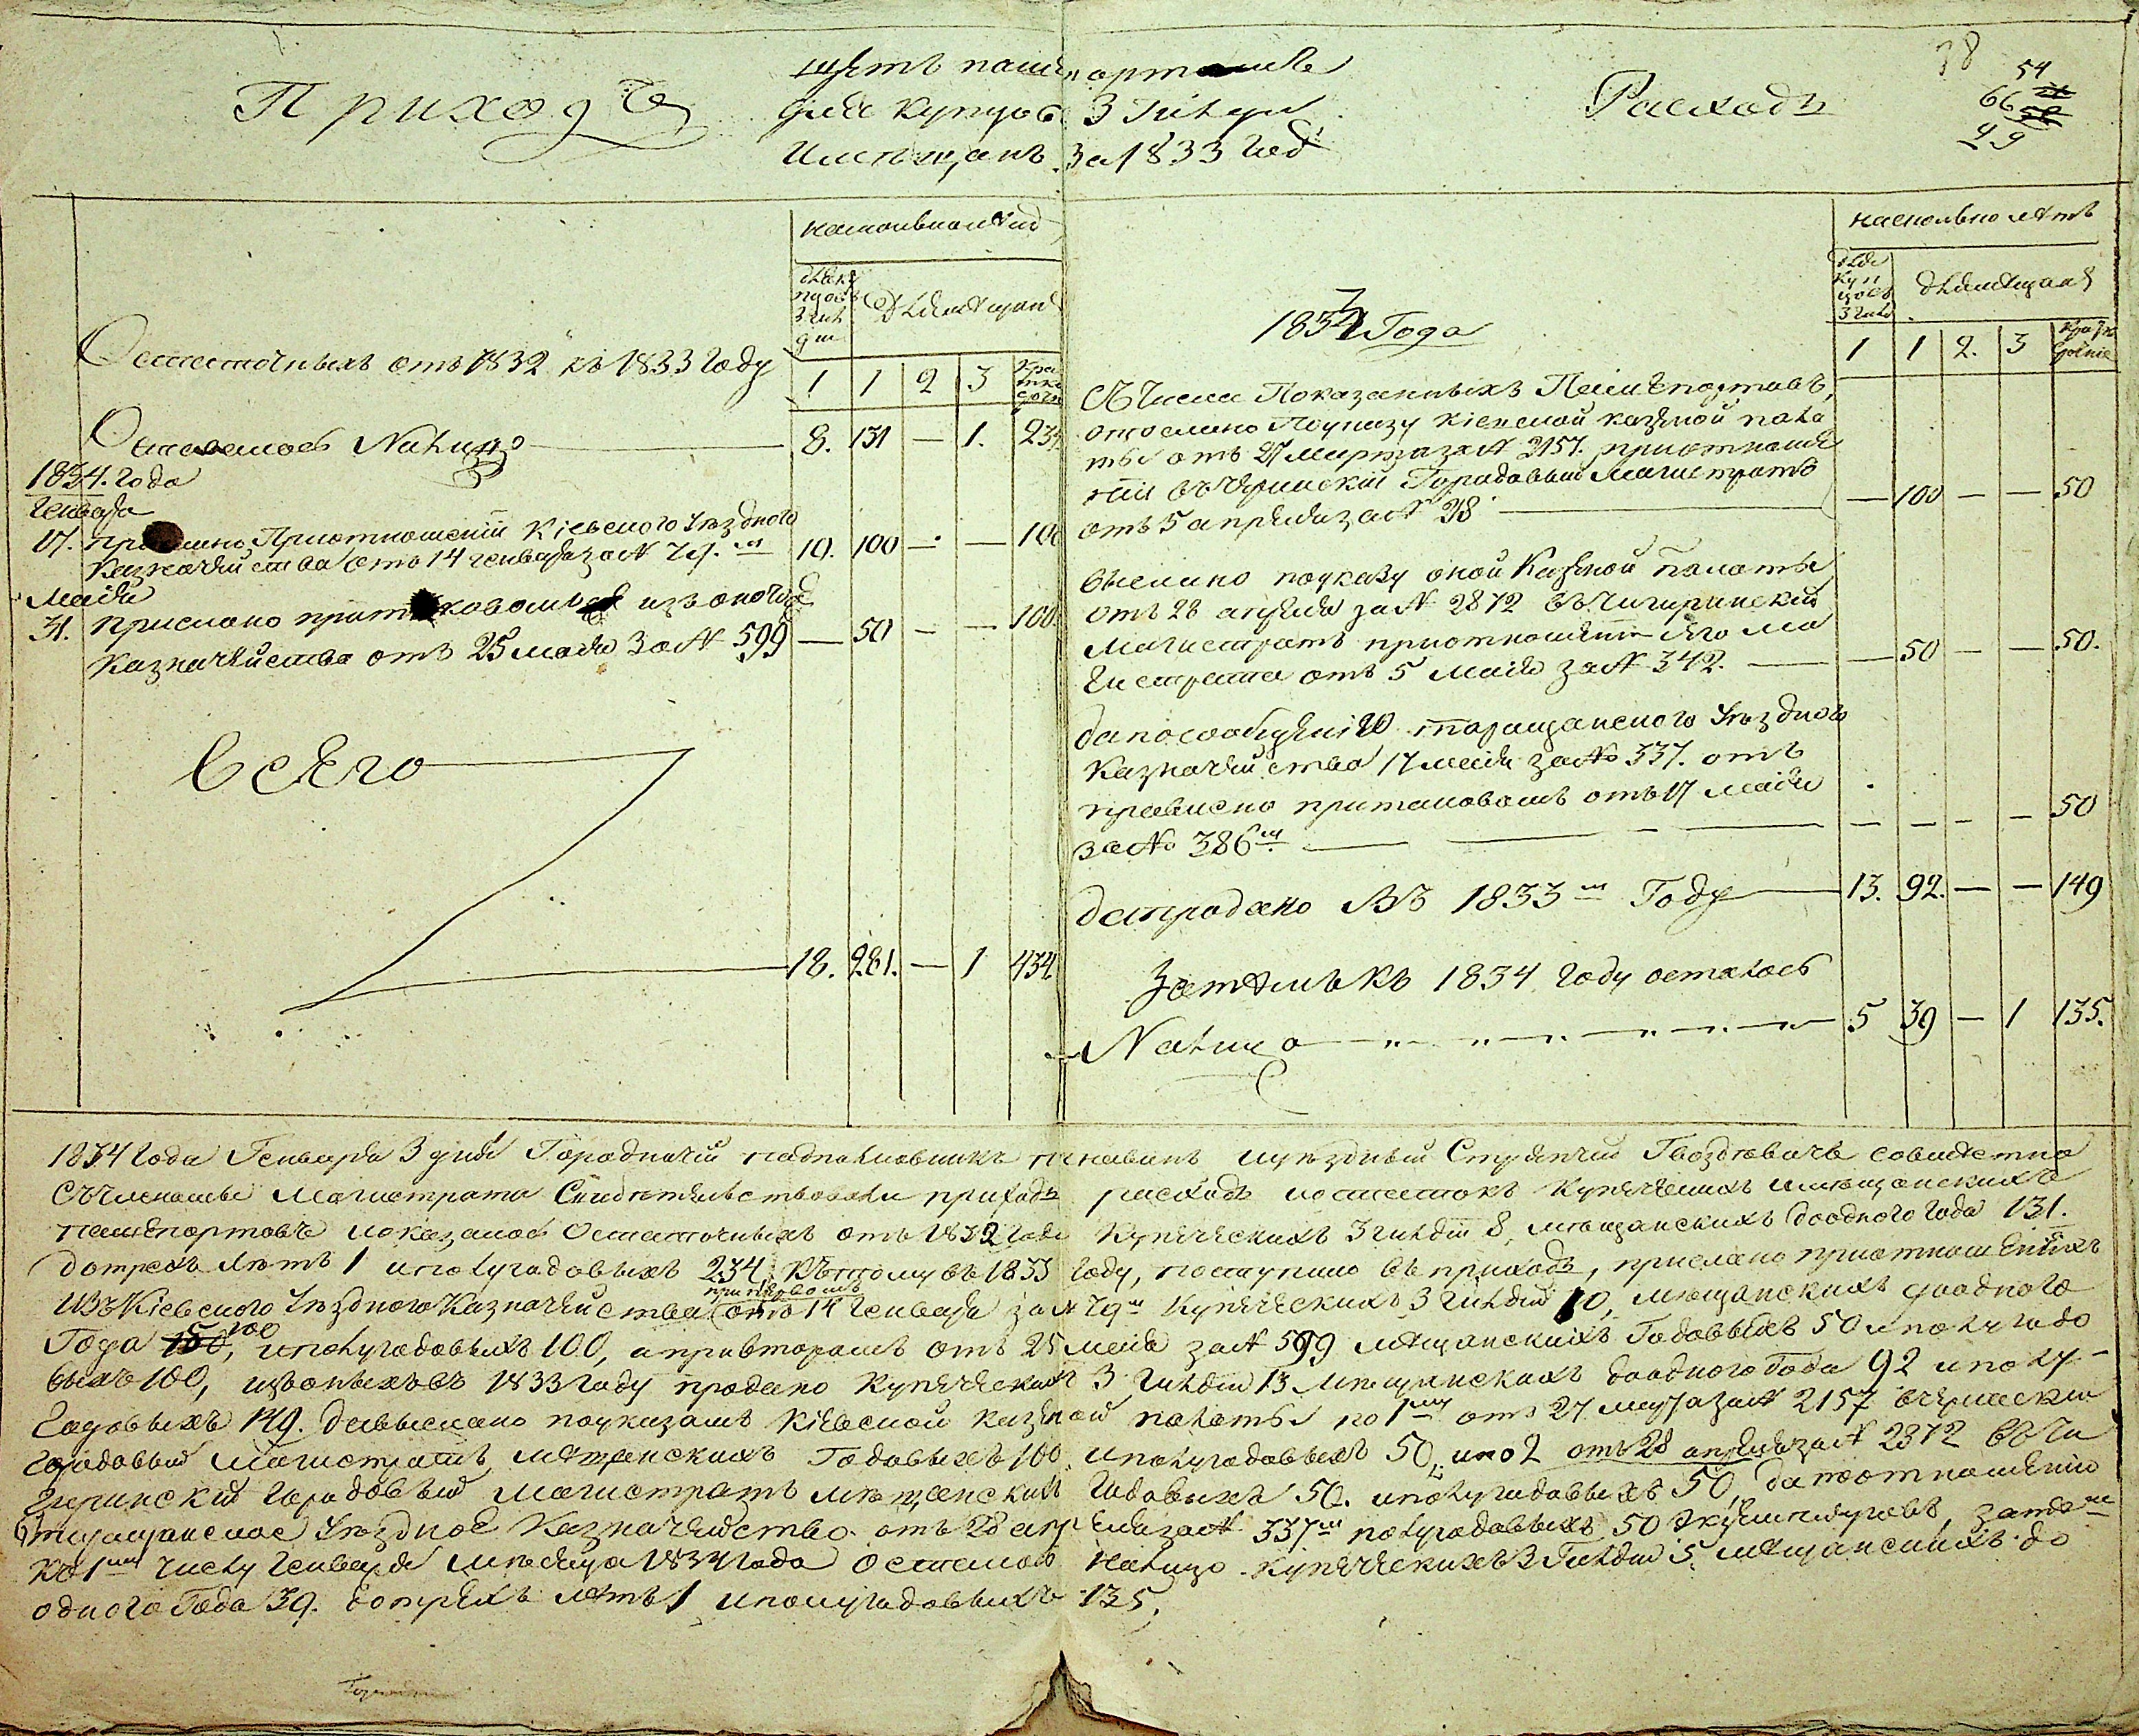 щетъ пашпортамъ
Приходъ
для купцовъ 3 Гильди
Имещанъ За 1833 Годъ
Расходъ
38
54
66
49
насколько летъ
для купцовъ 3 гильдии
Для мещанъ
1 1 2 3
Остаточныхъ отъ 1832 къ 1833 Году
Оказалось Налицо 8. 131 — 1. 234
1834. Года
Генваря
17. Прислано Приотношении Кіевского Уездного
Казначейства отъ 14 генваря за № 79. 10. 100 — — 100
Майя
31. Прислано притаковомъ изъ оного
Казначейства отъ 25 майя За № 599 — 50 — — 100
Всего
18. 281. — 1 434
насколько летъ
для купцовъ 3 Гильд
Для мещанъ
1 1 2. 3
1834 Года
Съ Числа Показанныхъ Пашепортовъ,
отослано Поуказу Кіевской казеной пала
ты отъ 27 Марта за № 2157. приотноше
ніи въ Черкаскій Городовый Магистратъ
отъ 5 апреля за № 28 — 100 — — 50
выслано поуказу оной Казеной Палаты
отъ 28 апреля за № 2872 въ Чигиринскій
Магистратъ приотношеніи его Ма
гистрата отъ 5 Майя за № 342. — 50 — — 50.
да посообщенію таращанского Уездного
Казначейства 17 Майя за № 337. от
правлено притаковомъ отъ 17 Майя
за № 386 — — — — 50
да продано Въ 1833 Году 13. 92. — — 149
Затемъ Къ 1834 году осталось
Налицо 5 39 — 1 135.
1834 Года Генваря 3 дня Городничий падполковникъ иуездный Стряпчий Гвоздовичъ совместно
Съчленамы Магистрата Свидетельствовали приходъ расходъ иостатокъ Купеческихъ имещанскихъ
пашепортовъ иоказалось Остаточныхъ отъ 1832 Года Купеческихъ 3 гильдіи 8, мещанскихъ доодного Года 131.
дотрехъ летъ 1 иполугодовыхъ 234, Къ тому въ 1833 Году, поступило въ приходъ, прислано приотношенияхъ
Изъ Кіевского Уездного Казначейства при первомъ отъ 14 Генваря за № 79 Купеческихъ 3 Гильдіи 10, мещанскихъ доодного
Года 100, иполугодовыхъ 100, апривторомъ отъ 25 Майя за № 599 мещанскихъ Годовыхъ 50 иполугодо
выхъ 100, изъоныхъ въ 1833 Году продано Купеческихъ 3 Гильдіи 13 Мещанскихъ доодного Года 92 иполу-
Годовыхъ 149. да выслано поуказамъ Кіевской казеной палаты по 1 отъ 27 Марта за № 2157 вЧеркаский
городовый Магистратъ, мещанскихъ Годовыхъ 100, иполугодовыхъ 50, ипо 2 отъ 28 апреля за № 2872 въ Чи
гиринский Городовый Магистратъ мещанскихъ Годовыхъ 50. иполугодовыхъ 50, да поотношению
таращанское Уездное Казначейство отъ 28 апреля за № 337 полугодовыхъ 50 экземпляровъ, затемъ
къ 1 числу Генваря месяца 1834 Года Осталось налицо Купеческихъ 3 Гильдіи 5. мещанскихъ до
одного Года 39. дотрехъ летъ 1 иполугодовыхъ 135,